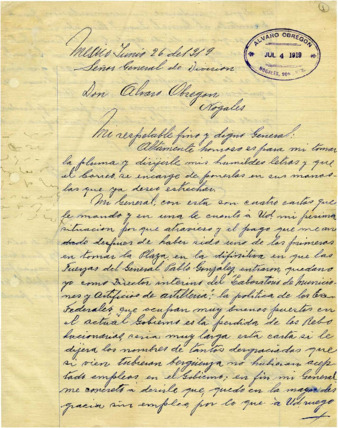 ALVARO OBREGON
JUL 4 1919
NOGALES, SON.
Junio 26 de 1919.
Señor General de Division
Don Alvaro Obregon
Nogales
Mi respetable fino y digno General:
Altamente honroso es para mi tomar
la pluma y dirijirle mis humildes letras y que
el correo se encarge de ponerlas en sus manos
las que ya deseo estrechar.
Mi General, con esta son cuatro cartas que
le mando y en una le cuento á Ud mi pésima
situación por que atravieso y el pago que me an
dado despues de haber sido uno de los primeros
en tomar la Plaza, en la difinitiva en que las
fuerzas del General Pablo Gonzalez entraron quedando
yo como Director interino del Laboratorio de Municio-
nes y Artificios de artilleria: la politica de los Ex-
Federales que ocupan muy buenos puestos en
el actual Gobierno es la perdida de los Revo
lucionarios seria muy larga esta carta si le
dijera los nombres de tantos desgraciados que
si vien tubieran berguenza no hubieran acep
tado empleos en el Gobierno, en fin mi General
me concreto á decirle que, quedo en la mayor des
gracia sin empleo por lo que á Ud ruego